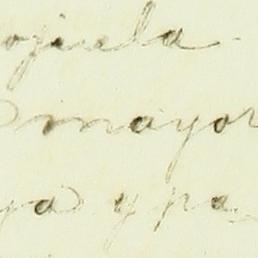 ojuela
mayor
ya y pa